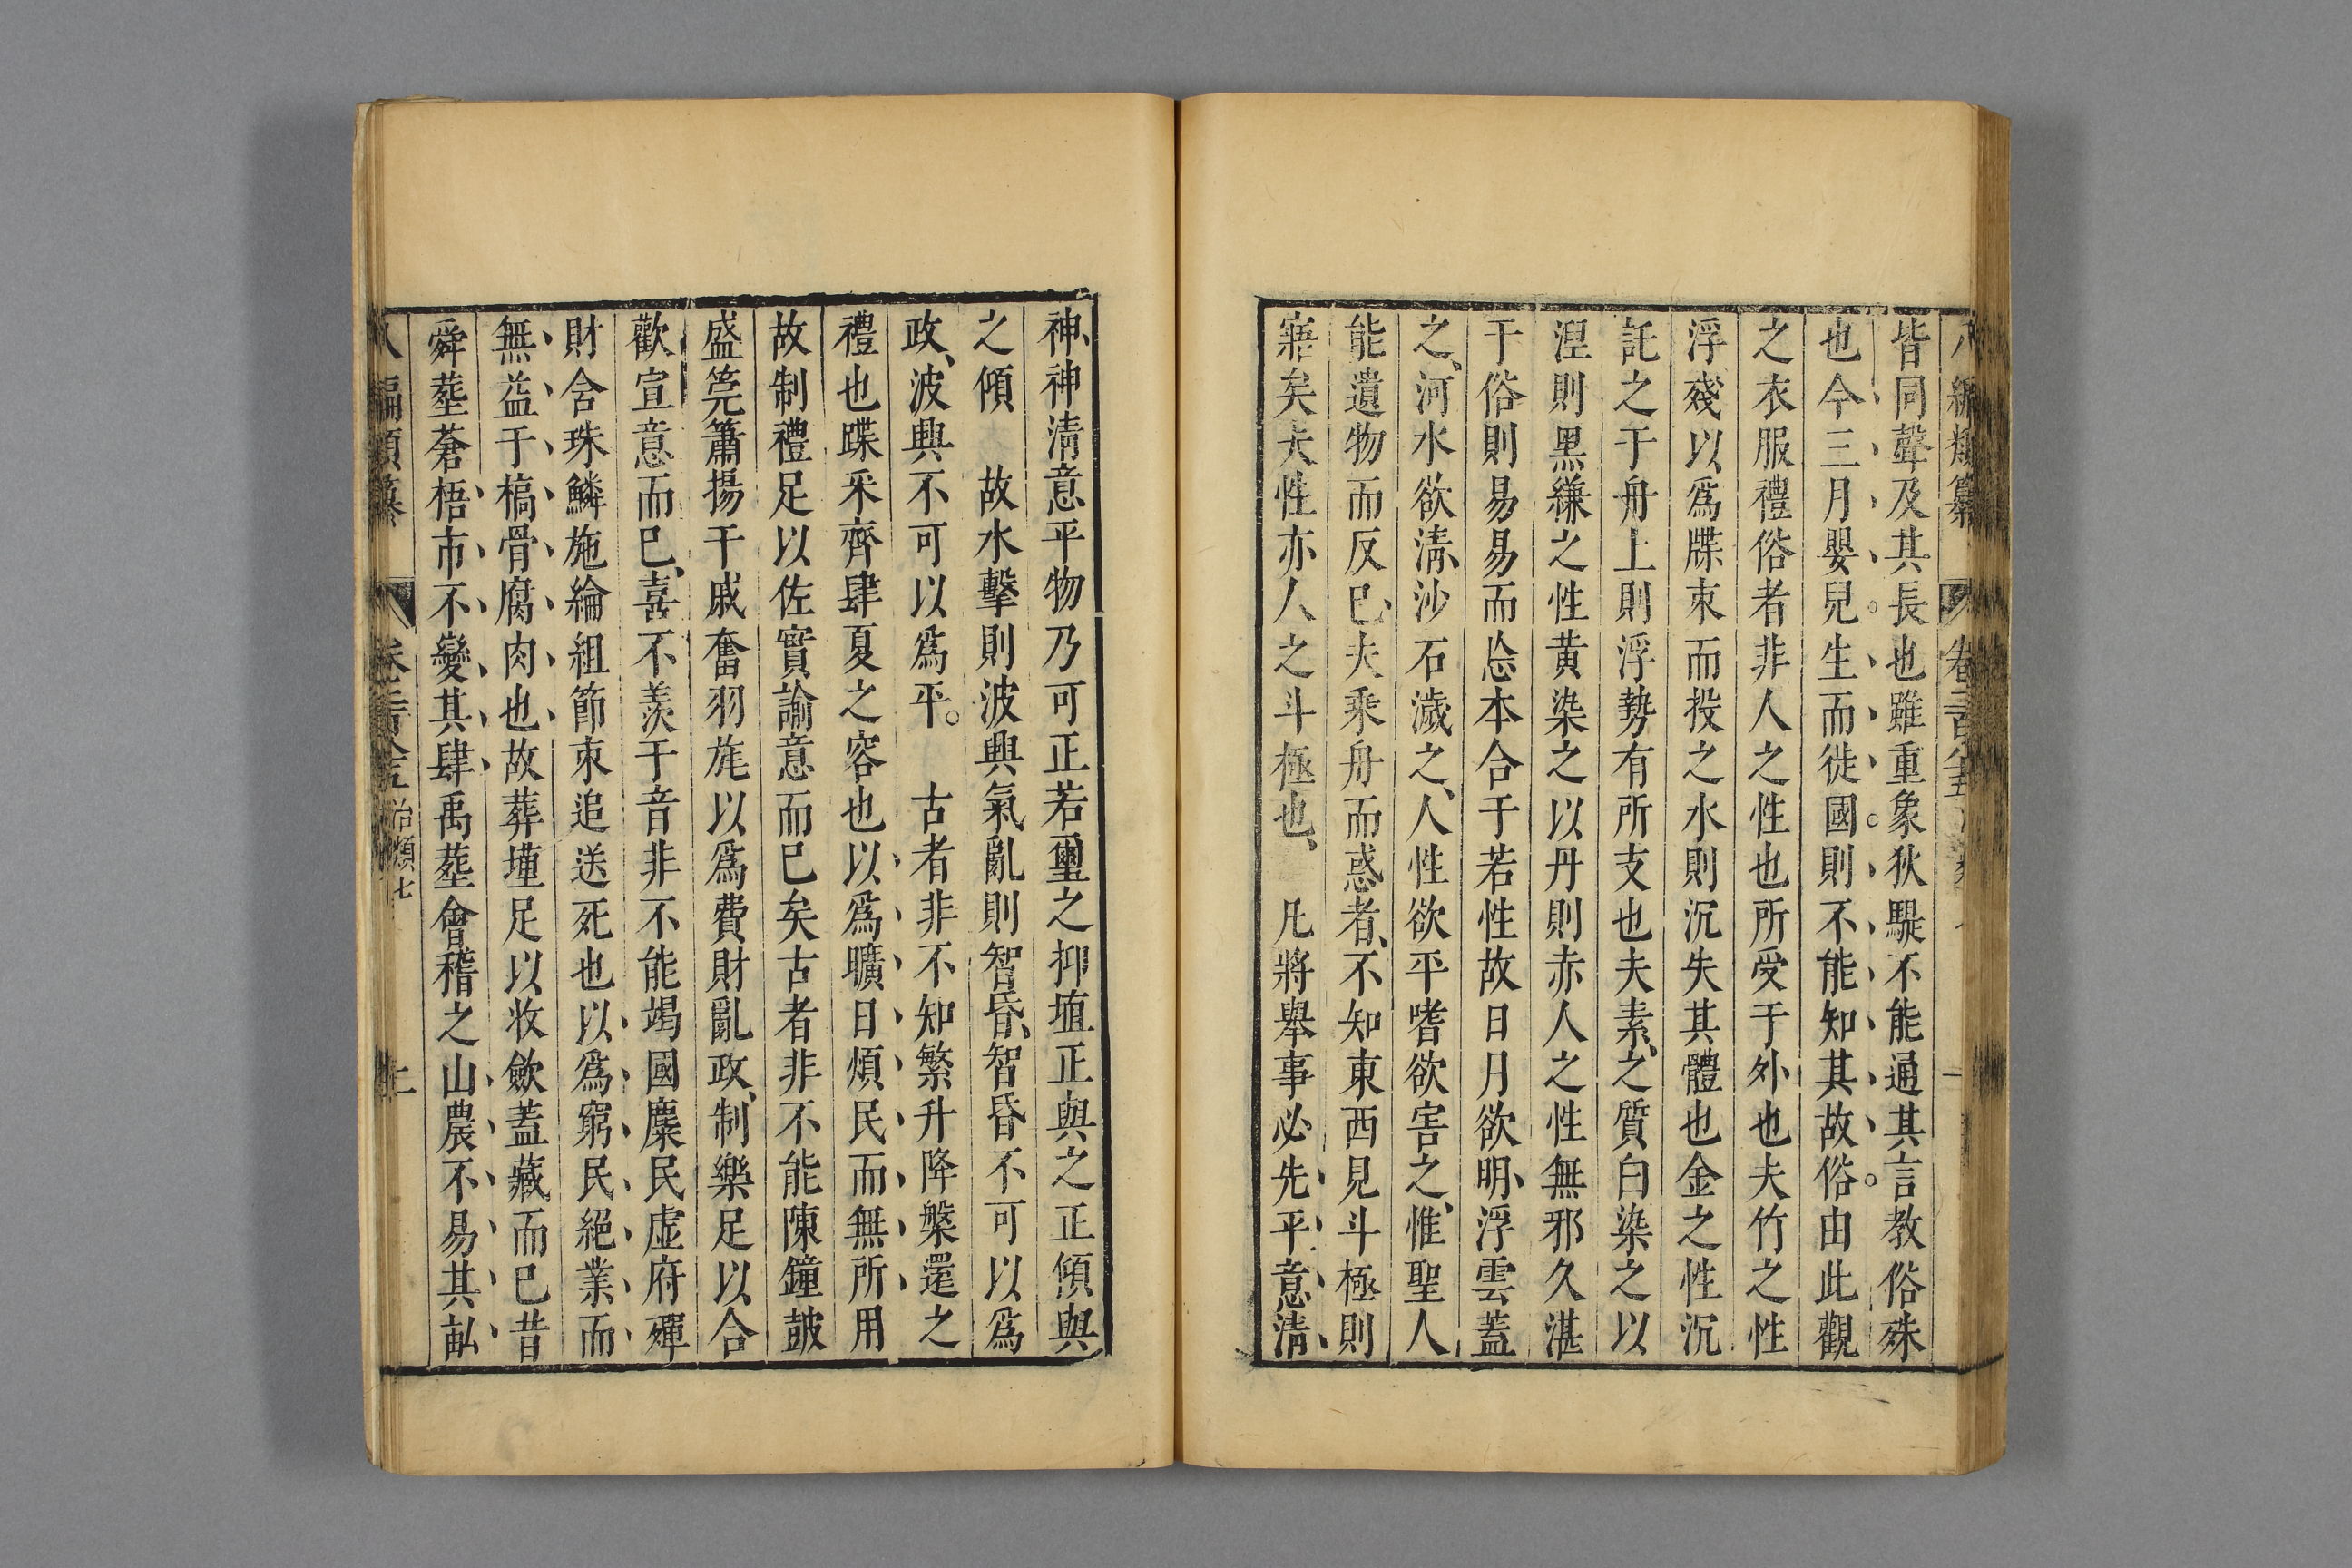 皆同聲及其長也雖重象狄騠不能通其言教俗殊
也今三月嬰兒生而徙國則不能知其故俗由此觀
之衣服禮俗者非人之性也所受于外也夫竹之性
浮殘以爲牒束而投之水則沉失其體也金之性沉
託之于舟上則浮勢有所支也夫素之質白染之以
涅則黑縑之性黃染之以丹則赤人之性無邪久湛
于俗則易易而忘本合于若性故日月欲明浮雲蓋
之河水欲清沙石濊之人性欲平嗜欲害之惟聖人
能遺物而反已夫乘舟而惑者不知東西見斗極則
寤矣夫性亦人之斗極也 凡將舉事必先平意清
神神清意平物乃可正若璽之抑埴正與之正傾與
之傾 故水擊則波興氣亂則智昏智昏不可以爲
政波興不可以爲平 古者非不知繁升降槃還之
禮也蹀采齊肆夏之容也以爲曠日煩民而無所用
故制禮足以佐實諭意而已矣古者非不能陳鐘鼓
盛筦簫揚干戚奮羽旄以爲費財亂政制樂足以合
歡宣意而已喜不羨于音非不能竭國麋民虛府殫
財含珠鱗施綸組節束追送死也以爲窮民絕業而
無益于槁骨腐肉也故葬薶足以收斂蓋藏而已昔
舜塟蒼梧市不變其肆禹塟會稽之山農不易其畝
八編類纂 卷 治類七